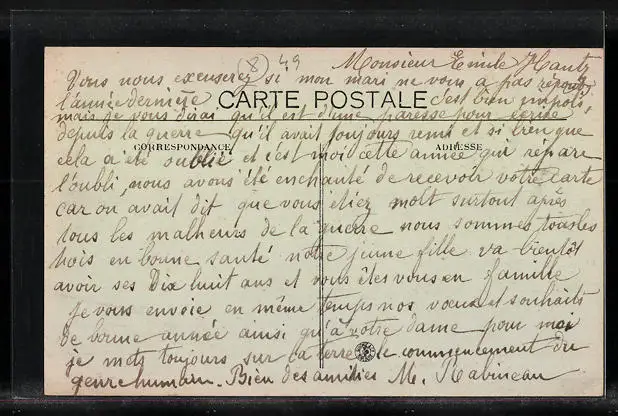 (8) 49
Monsieur Emile Hautz
Vous nous excuserez si mon mari ne vous a pas répondu
l'année dernière c'est bien impoli,
CARTE POSTALE
mais je vous dirai qu'il est d'une paresse pour écrire
depuis la guerre qu'il avait toujours remis et si bien que
CORRESPONDANCE ADRESSE
cela a été oublié et c'est moi cette année qui répare
l'oubli, nous avons été enchanté de recevoir votre carte
car on avait dit que vous étiez mort surtout après
tous les malheurs de la guerre nous sommes tous les
trois en bonne santé notre jeune fille va bientôt
avoir ses Dix huit ans et vous êtes vous en famille
Je vous envoie en même temps nos vœux et souhaits
de bonne année ainsi qu'à votre dame pour moi
je mets toujours sur la terre le commencement du
genre humain. Bien des amitiés M. Rabineau